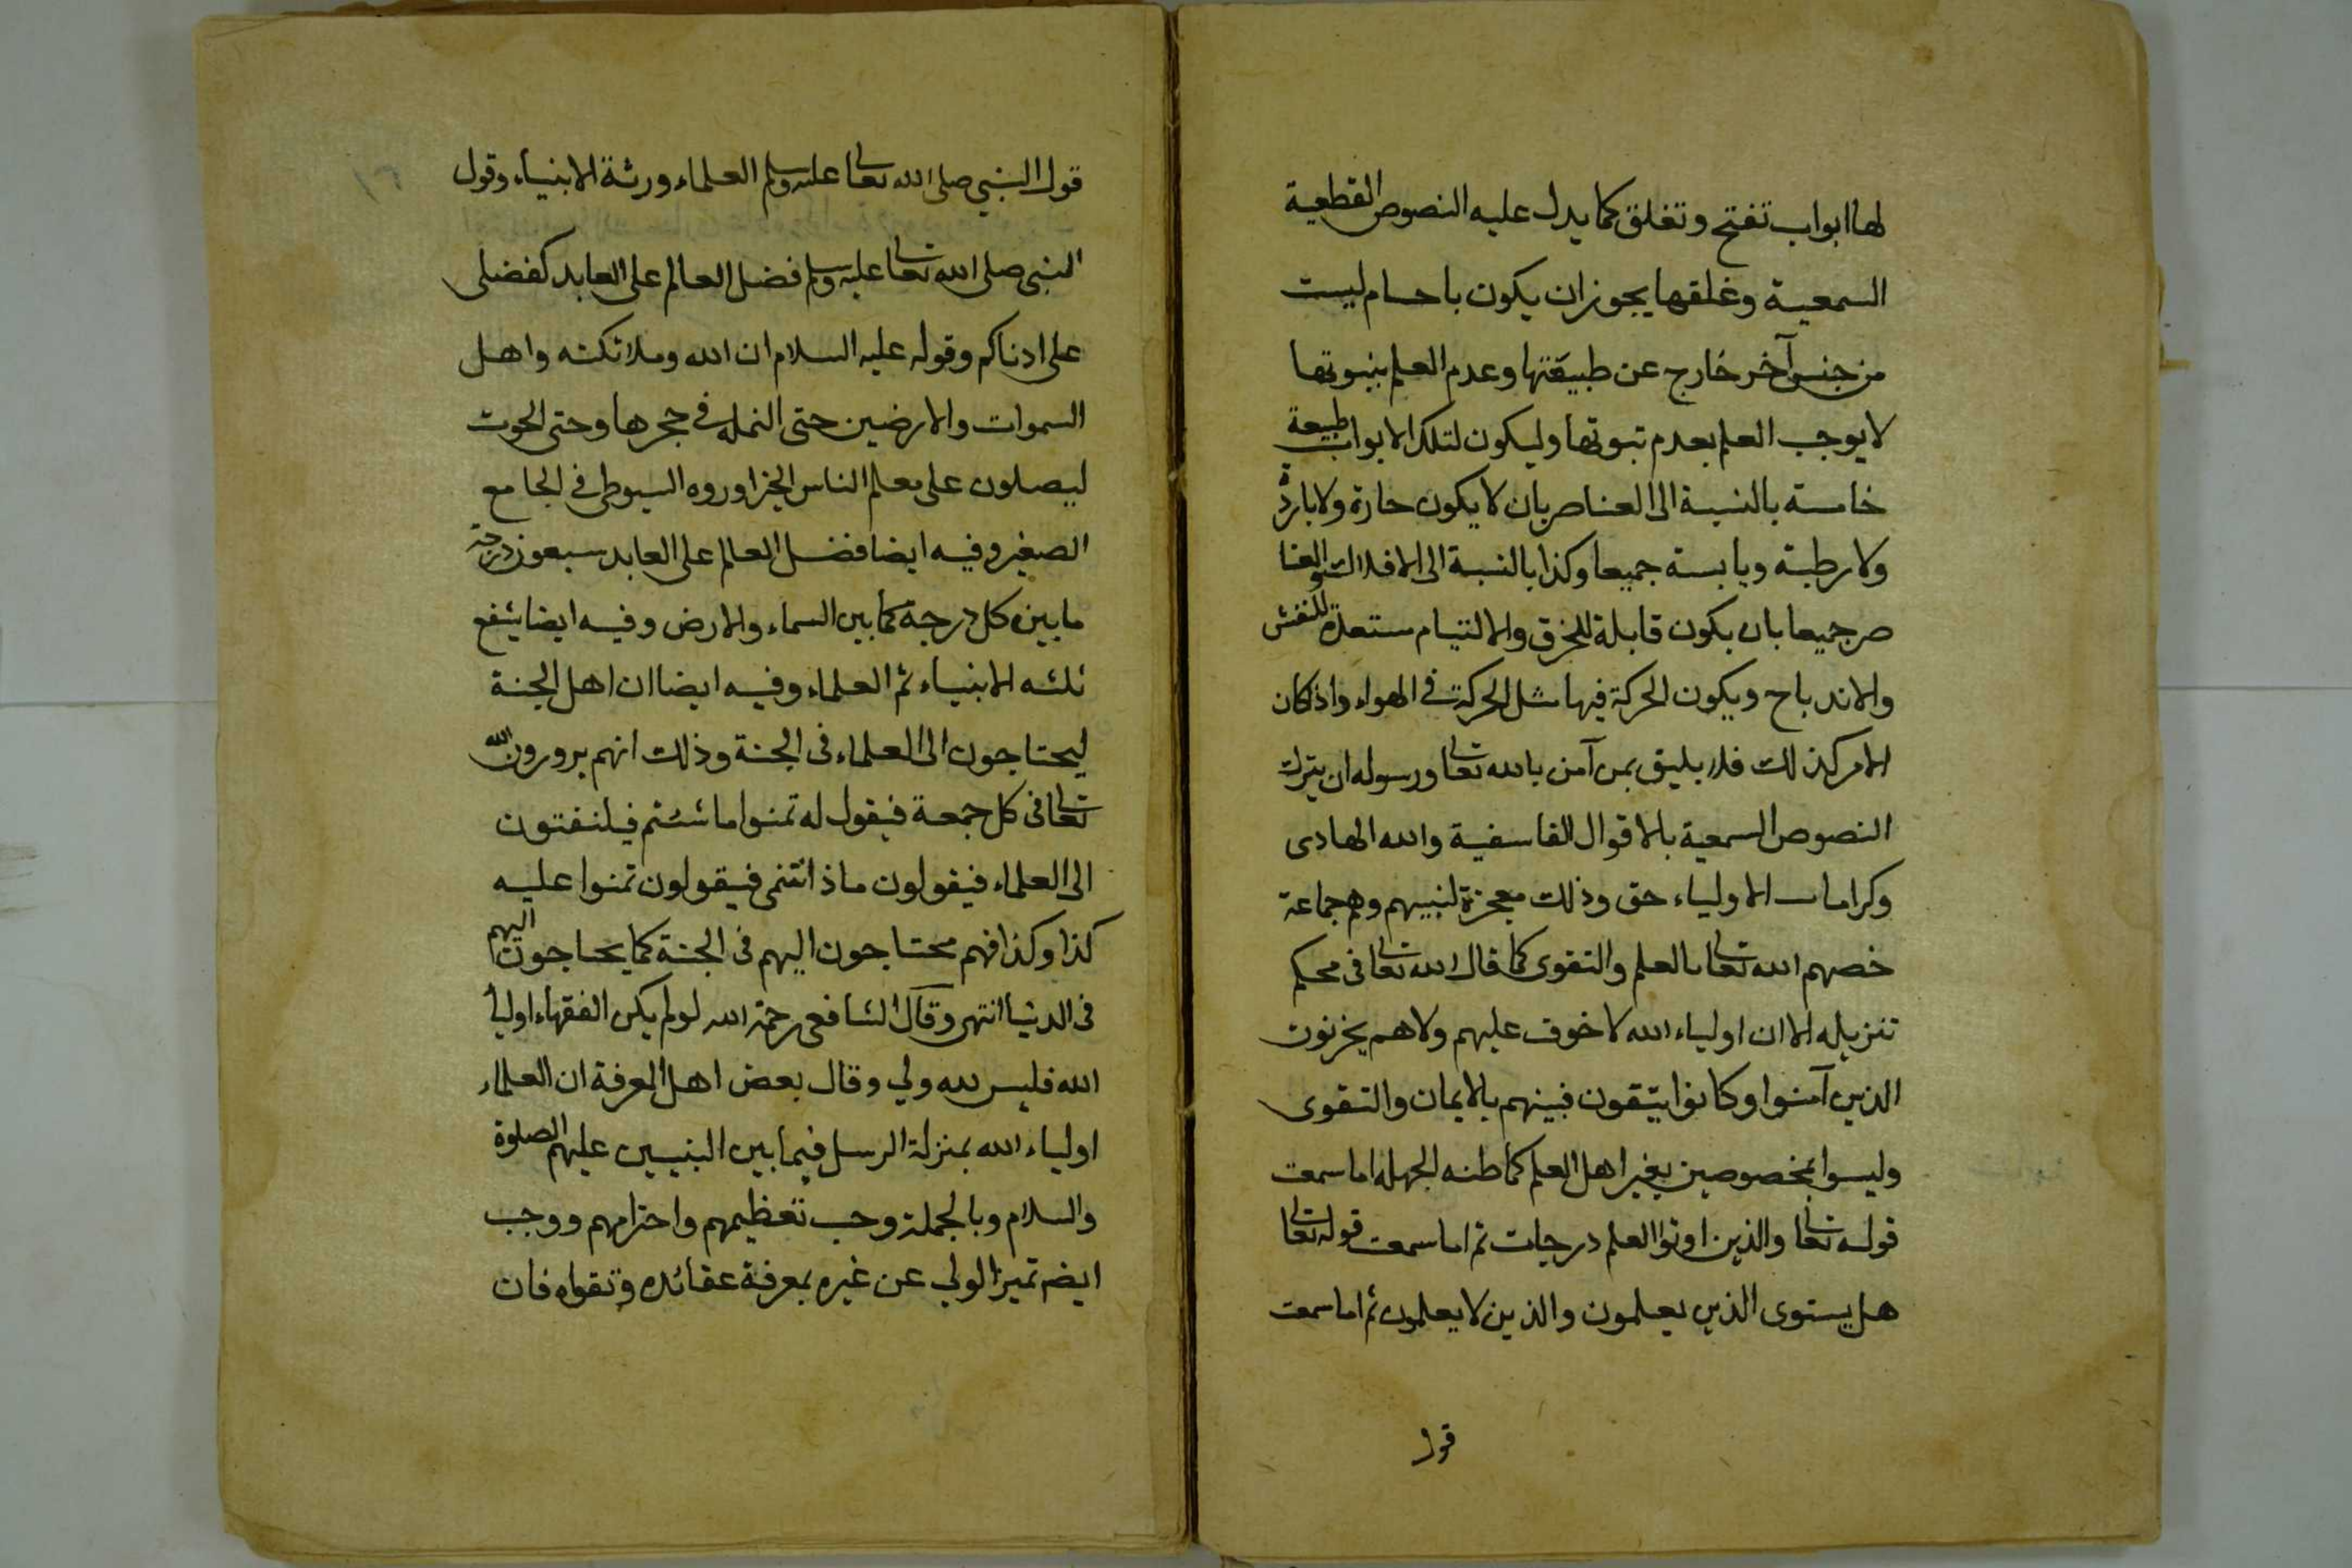 لها ابواب تفتح وتغلق كما يدل عليه النصوص القطعية
السمعية وغلقها يجوز ان يكون باحسام ليست
من جنس آخر خارج عن طبيقتها وعدم العلم بثبوتها
لا يوجب العلم بعدم ثبوتها وليكون لتلك الابواب طبيعة
خامسة بالنسبة الى العناصر بان لا يكون حارة ولا باردة
ولا رطبة ويابسة جميعا وكذا بالنسبة الى الافلاك والعنا
صر جميعا بان يكون قابلة للخرق والالتيام مستعدة للنفش
والاندباح ويكون الحركة فيها مثل الحركة في الهواء واذ كان
الامر كذلك فلا يليق بمن آمن بالله تعا ورسوله ان يترك
النصوص السمعية بالاقوال الفاسفية والله الهادى
وكرامات الاولياء حق وذلك معجزة لنبيهم وهم جماعة
خصهم الله تعا بالعلم والتقوى كما قال الله تعا فى محكم
تنزيله الا ان اولياء الله لا خوف عليهم ولا هم يحزنون
الذين آمنوا وكانوا يتقون فبينهم بالايمان والتقوى
وليسوا بمخصوصين بغير اهل العلم كما ظنه الجهله اما سمعت
قوله تعا والذين اوتوا العلم درجات ثم اما سمعت قوله تعا
هل يستوى الذين يعلمون والذين لا يعلمون ثم اما سمعت
قول
قول النبي صلى الله تعا عليه وسلم العلماء ورثة الانبياء وقول
النبى صلى الله تعا عليه وسلم فضل العالم على العابد كفضلى
على ادناكم وقوله عليه السلام ان الله وملائكته واهل
السموات والارضين حتى النمله في حجرها وحتى الحوت
ليصلون على معلم الناس الخير اوروه السيوطى في الجامع
الصغير وفيه ايضا فضل العالم على العابد سبعون درجة
ما بين كل درجة كما بين السماء والارض وفيه ايضا يشفع
ثلثه الانبياء ثم العلماء وفيه ايضا ان اهل الجنة
ليحتاجون الى العلماء فى الجنة وذلك انهم يرورون الله
تعا فى كل جمعة فيقول له تمنوا ما شئتم فيلنفتون
الى العلماء فيقولون ماذا نتمنى فيقولون تمنوا عليه
كذا وكذا فهم محتاجون اليهم فى الجنة كما يحتاجون اليهم
فى الدنيا انتهى وقال الشافعى رحمة الله لو لم يكن الفقهاء اوليا
الله فليس لله ولي وقال بعض اهل المعرفة ان العلماء
اولياء الله بمنزلة الرسل فيما بين النبيين عليهم الصلوة
والسلام وبالجملة وجب تعظيمهم واحترامهم ووجب
ايضه تميز الولي عن غيره بمعرفة عقائده وتقواه فان